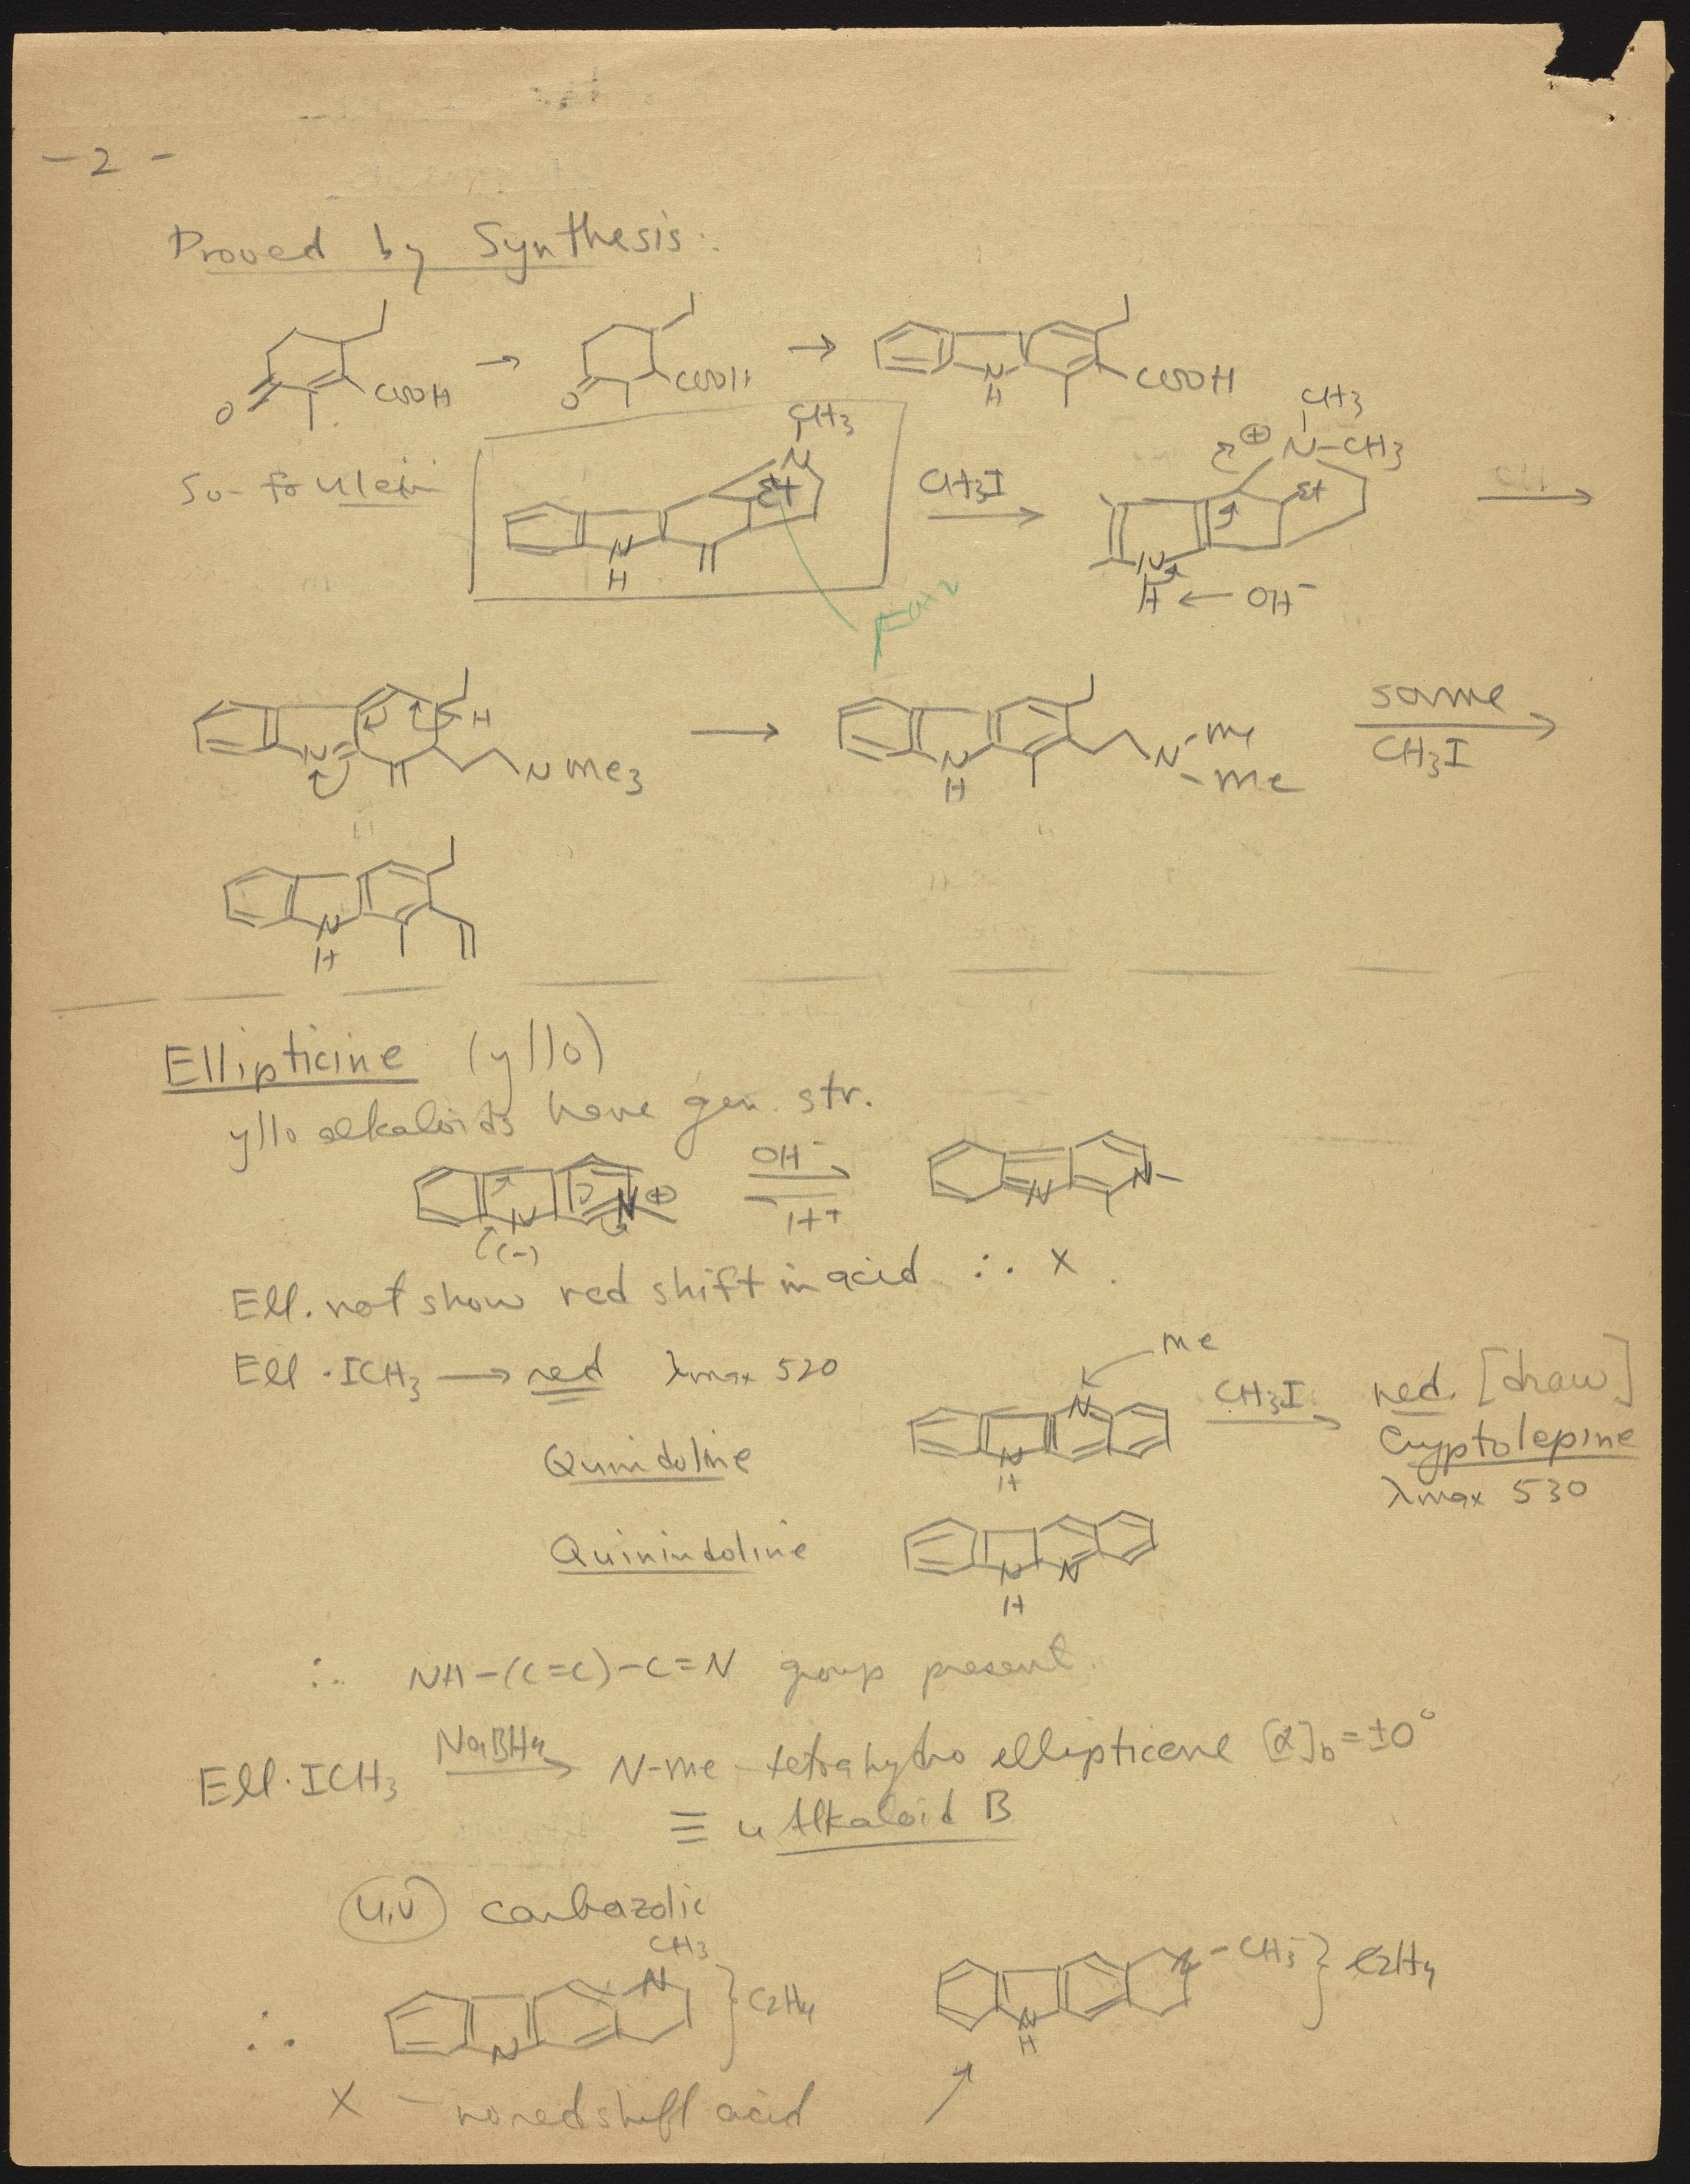 - 2 -
Proved by Synthesis:
O COOH → O COOH → N H COOH
So- for uleine N H Et N CH3 CH3I → ⊕ N-CH3 CH3 Et N H ← OH⁻ →
N H NMe3 → N H N-Me -Me same CH3I →
N H
Ellipticine (yllo)
yllo alkaloids have gen. str.
N (-) N⊕ OH⁻ H+ N N-
Ell. not show red shift in acid ∴ X.
Ell · ICH3 → red λmax 520
Me
Qunidoline N N H CH3I → red. [draw]
Cryptolepine
λmax 530
Quinindoline N H N
∴ NH-(C=C)-C=N group present.
Ell·ICH3 NaBH4 → N-Me-tetrahydro ellipticene [α]D = ±0°
≡ u Alkaloid B
u.v carbazolic
∴ N N CH3 } C2H4 N H N-CH3 } C2H4
X - no red shift acid